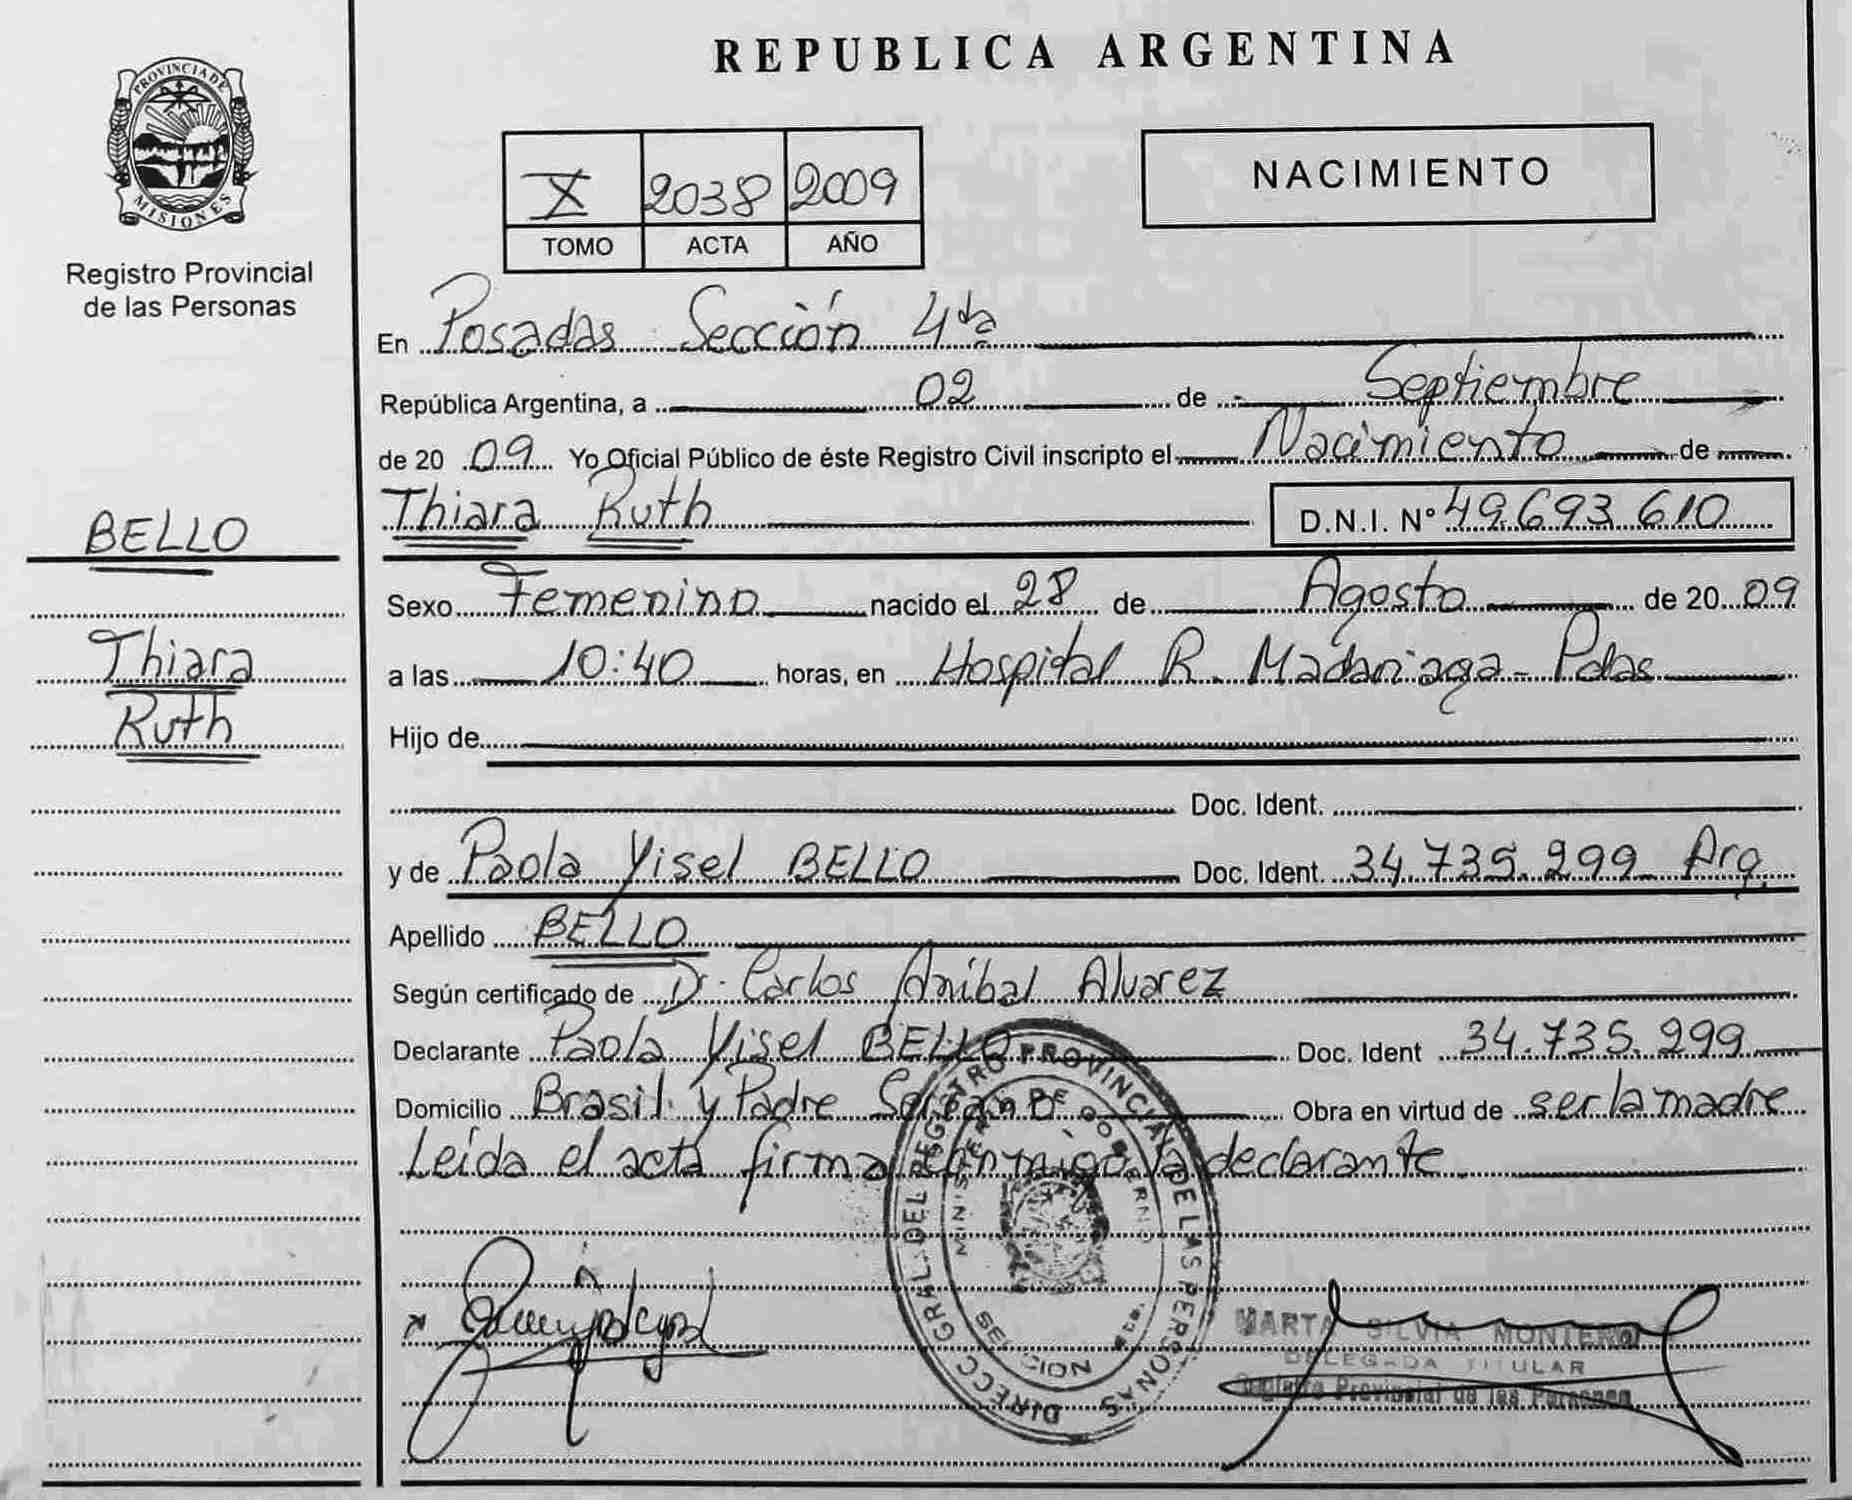 PROVINCIA DE
MISIONES
Registro Provincial
de las Personas
BELLO
Thiara
Ruth
REPUBLICA ARGENTINA
X 2038 2009
TOMO ACTA AÑO
NACIMIENTO
En Posadas Sección 4ta
República Argentina, a 02 de Septiembre
de 2009 Yo Oficial Público de éste Registro Civil inscripto el Nacimiento de
Thiara Ruth D.N.I. Nº 49.693.610
Sexo Femenino nacido el 28 de Agosto de 2009
a las 10:40 horas, en Hospital R. Madariaga - Pdas
Hijo de
Doc. Ident.
y de Paola Yisel BELLO Doc. Ident. 34.735.299 Arg.
Apellido BELLO
Según certificado de Dr. Carlos Anibal Alvarez
Declarante Paola Yisel BELLO Doc. Ident 34.735.299
Domicilio Brasil y Padre Obra en virtud de ser la madre
Leída el acta firma conmigo la declarante
DIRECC. GRAL. DEL REGISTRO PROVINCIAL DE LAS PERSONAS
MINISTERIO DE GOBIERNO
SECCION
MARTA SILVIA MONTERO
DELEGADA TITULAR
Registro Provincial de las Personas